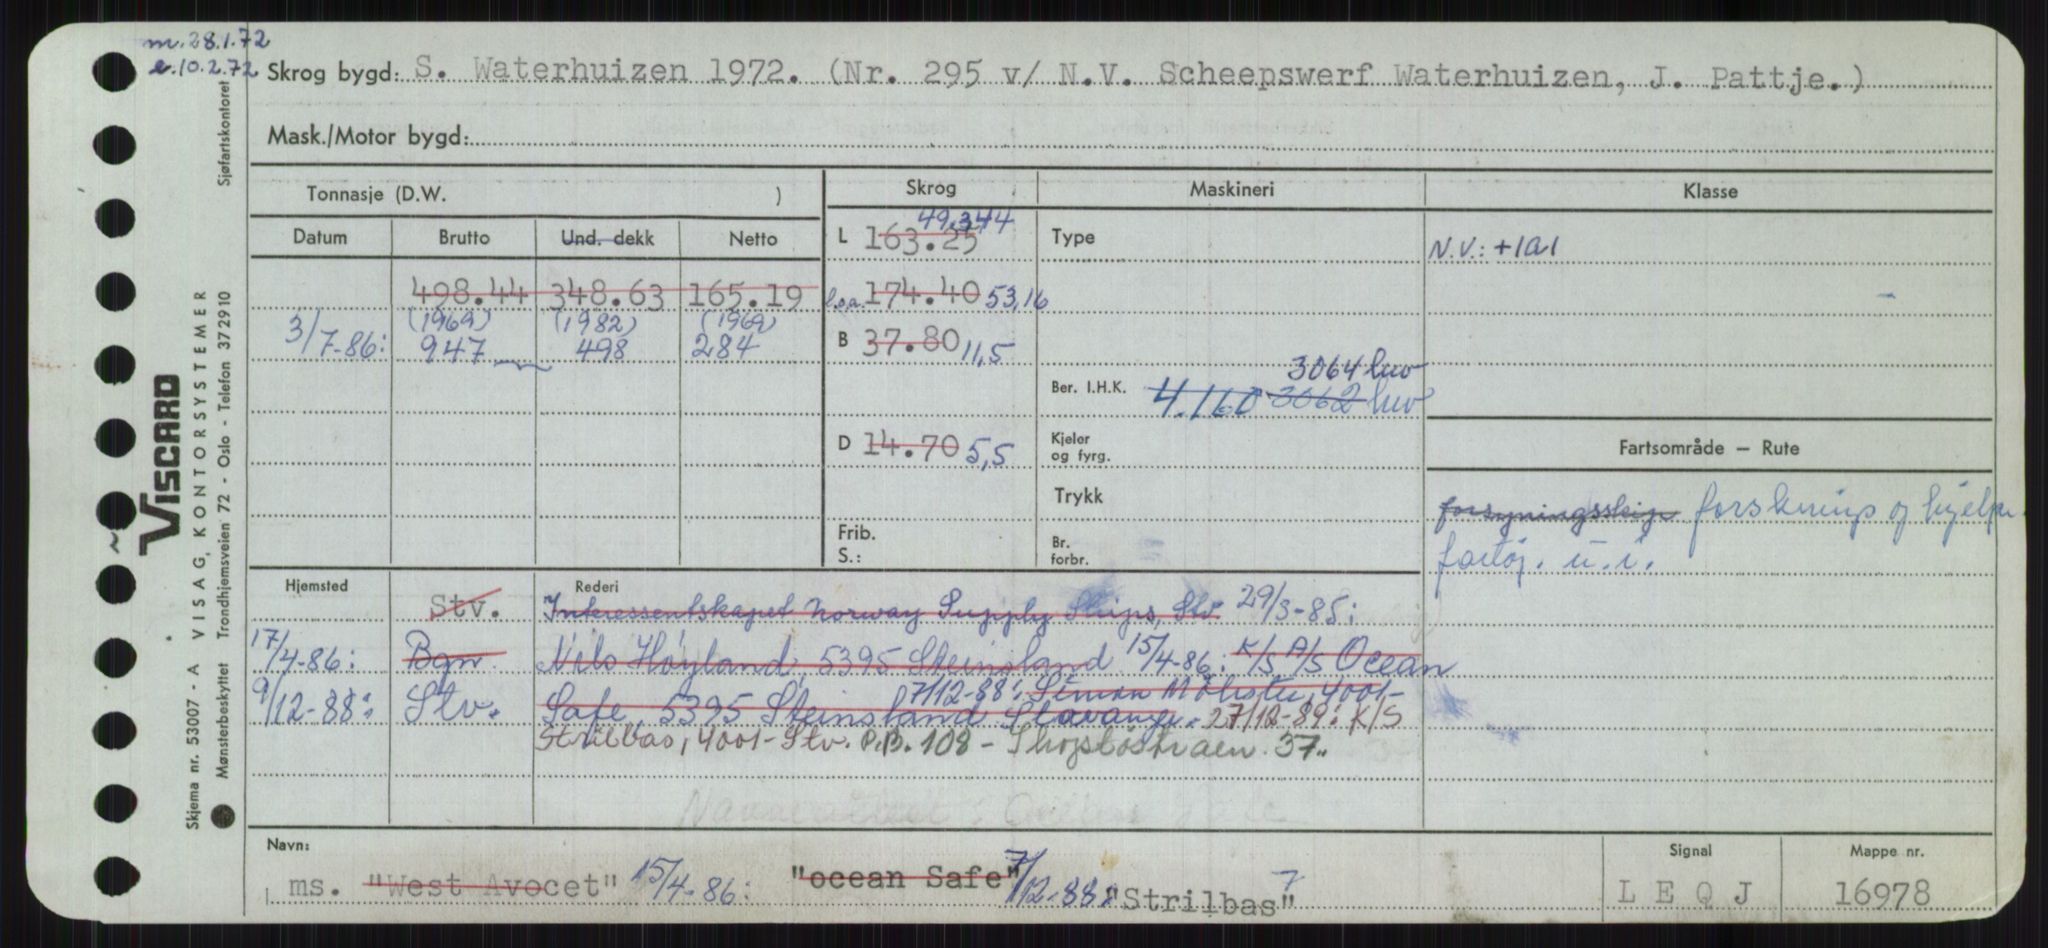 m. 28.1.72
e. 10.2.72 Skrog bygd: S. Waterhuizen 1972. (Nr. 295 v/ N.V. Scheepswerf Waterhuizen, J. Pattje.)
Mask./Motor bygd:
Tonnasje (D.W. ) Skrog Maskineri Klasse
Datum Brutto Und. dekk Netto L 163.25 49,344 Type N.V.: +1A1
498.44 348.63 165.19 l.o.a. 174.40 53,16
(1969) (1982) (1969)
3/7-86: 947 498 284 B 37.80 11,5
3064 hkv
Ber. I.H.K. 4.160 3062 hkv
D 14.70 5,5 Kjeler og fyrg. Fartsområde — Rute
Trykk
forsyningsskip forsknings og hjelpe-
Frib. Br.
S.: forbr. fartøj. u.i.
Hjemsted Rederi
Stv. Interessentskapet Norway Supply Ships, Stv. 29/3-85:
17/4-86: Bgn. Nils Høyland, 5395 Steinsland 15/4-86: K/S A/S Ocean
9/12-88: Stv. Safe, 5395 Steinsland 7/12-88: Simon Møkster, 4001-
Stavanger. 27/12-89: K/S
Strilbas, 4001-Stv. P.B. 108 - Skogstøstraen 37.
Navn:
ms. "West Avocet" 15/4-86: "ocean Safe" 7/12-88: "Strilbas"
Signal
L E Q J
Mappe nr.
16978
Skjema nr. 53007 - A VISAG, KONTORSYSTEMER
VISCARD
Mønsterbeskyttet Trondhjemsveien 72 - Oslo - Telefon 372910
Sjøfartskontoret